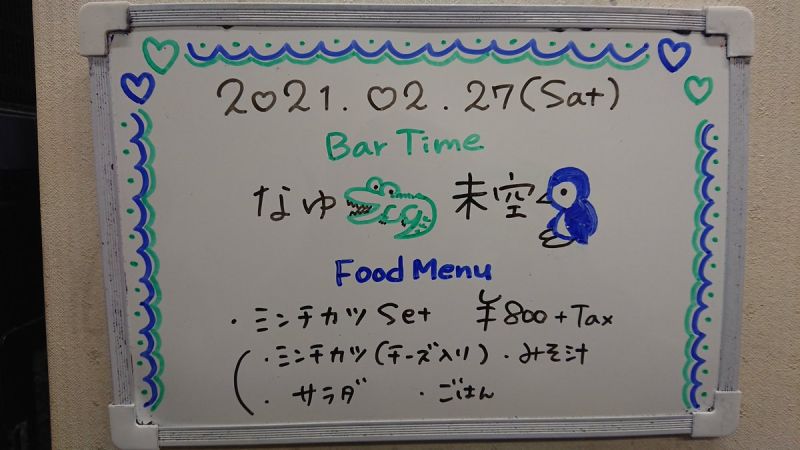 2021.02.27(Sat)
Bar Time
なゆ 未空
Food Menu
・ミンチカツ Set ¥800+Tax
(・ミンチカツ(チーズ入り)・みそ汁
・サラダ ・ごはん